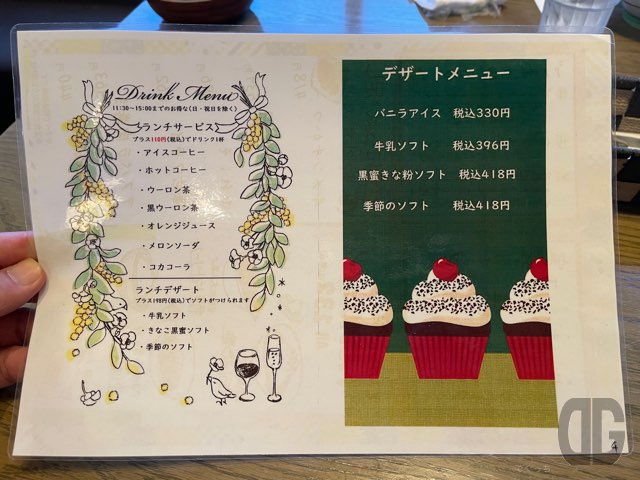 Drink Menu
11:30〜15:00までのお得な(日・祝日を除く)
ランチサービス
プラス110円(税込)でドリンク1杯
・アイスコーヒー
・ホットコーヒー
・ウーロン茶
・黒ウーロン茶
・オレンジジュース
・メロンソーダ
・コカコーラ
ランチデザート
プラス198円(税込)でソフトがつけられます
・牛乳ソフト
・きなこ黒蜜ソフト
・季節のソフト
デザートメニュー
バニラアイス 税込330円
牛乳ソフト 税込396円
黒蜜きな粉ソフト 税込418円
季節のソフト 税込418円
DG
4